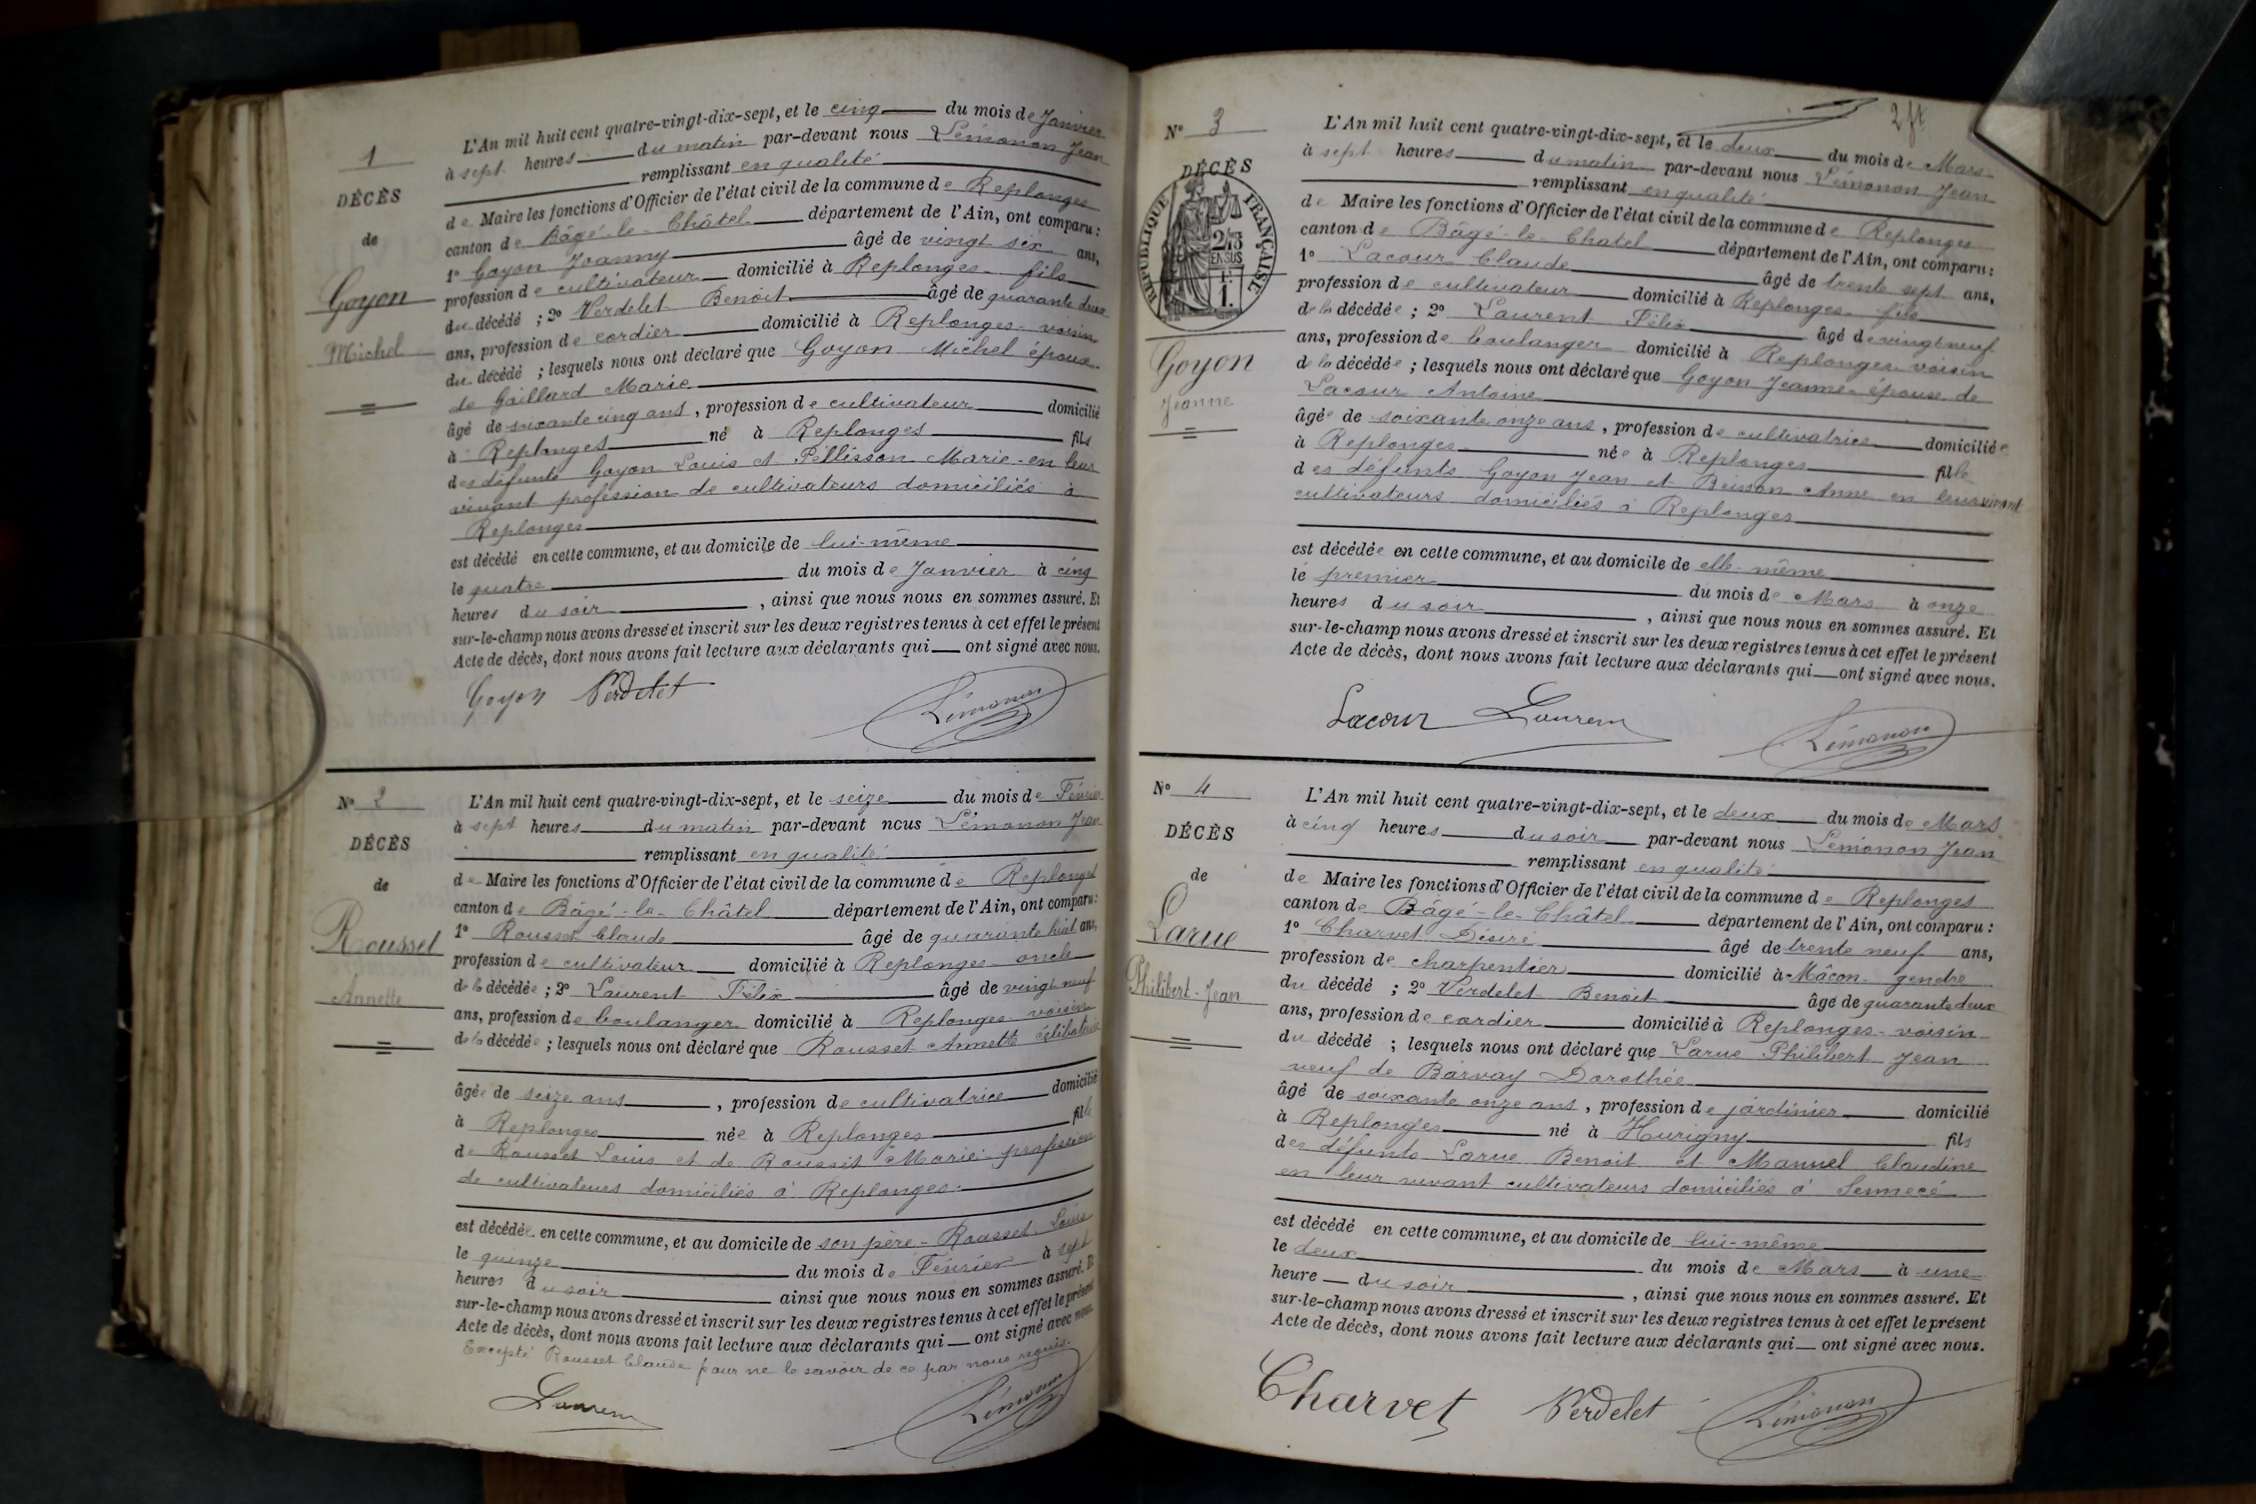 1
DÉCÈS
de
Goyon
Michel
L'An mil huit cent quatre-vingt-dix-sept, et le cinq du mois de Janvier
à sept heures du matin par-devant nous Lémonon Jean
remplissant en qualité
de Maire les fonctions d'Officier de l'état civil de la commune de Replonges
canton de Bâgé-le-Châtel département de l'Ain, ont comparu :
1° Goyon Joanny âgé de vingt six ans,
profession de cultivateur domicilié à Replonges fils
du décédé ; 2° Verdelet Benoit âgé de quarante deux
ans, profession de cordier domicilié à Replonges voisin
du décédé ; lesquels nous ont déclaré que Goyon Michel époux
de Gaillard Marie
âgé de soixante cinq ans, profession de cultivateur domicilié
à Replonges né à Replonges fils
des défunts Goyon Louis et Pellisson Marie en leur
vivant profession de cultivateurs domiciliés à
Replonges
est décédé en cette commune, et au domicile de lui-même
le quatre du mois de Janvier à cinq
heures du soir, ainsi que nous nous en sommes assuré. Et
sur-le-champ nous avons dressé et inscrit sur les deux registres tenus à cet effet le présent
Acte de décès, dont nous avons fait lecture aux déclarants qui ont signé avec nous.
Goyon Verdelet Lémonon
N° 2
DÉCÈS
de
Rousset
Annette
L'An mil huit cent quatre-vingt-dix-sept, et le seize du mois de Février
à sept heures du matin par-devant nous Lémonon Jean
remplissant en qualité
de Maire les fonctions d'Officier de l'état civil de la commune de Replonges
canton de Bâgé-le-Châtel département de l'Ain, ont comparu :
1° Rousset Claude âgé de quarante huit ans,
profession de cultivateur domicilié à Replonges oncle
de la décédée ; 2° Laurent Félix âgé de vingt neuf
ans, profession de boulanger domicilié à Replonges voisin
de la décédée ; lesquels nous ont déclaré que Rousset Annette célibataire
âgée de seize ans, profession de cultivatrice domicilié
à Replonges née à Replonges fille
de Rousset Louis et de Rousset Marie profession
de cultivateurs domiciliés à Replonges.
est décédée en cette commune, et au domicile de son père - Rousset Louis
le quinze du mois de Février à sept
heures du soir ainsi que nous nous en sommes assuré. Et
sur-le-champ nous avons dressé et inscrit sur les deux registres tenus à cet effet le présent
Acte de décès, dont nous avons fait lecture aux déclarants qui ont signé avec nous.
Excepté Rousset Claude pour ne le savoir de ce par nous requis.
Laurent Lémonon
2 ft
N° 3
DÉCÈS
RÉPUBLIQUE FRANÇAISE
Goyon
Jeanne
L'An mil huit cent quatre-vingt-dix-sept, et le deux du mois de Mars
à sept heures du matin par-devant nous Lémonon Jean
remplissant en qualité
de Maire les fonctions d'Officier de l'état civil de la commune de Replonges
canton de Bâgé-le-Chatel département de l'Ain, ont comparu :
1° Lacour Claude âgé de trente sept ans,
profession de cultivateur domicilié à Replonges fils
de la décédée ; 2° Laurent Félix âgé de vingt neuf
ans, profession de boulanger domicilié à Replonges voisin
de la décédée ; lesquels nous ont déclaré que Goyon Jeanne épouse de
Lacour Antoine
âgée de soixante onze ans, profession de cultivatrice domiciliée
à Replonges née à Replonges fille
des défunts Goyon Jean et Anne en leur vivant
cultivateurs domiciliés à Replonges
est décédée en cette commune, et au domicile de elle-même
le premier du mois de Mars à onze
heures du soir, ainsi que nous nous en sommes assuré. Et
sur-le-champ nous avons dressé et inscrit sur les deux registres tenus à cet effet le présent
Acte de décès, dont nous avons fait lecture aux déclarants qui ont signé avec nous.
Lacour Laurent Lémonon
N° 4
DÉCÈS
de
Larue
Philibert-Jean
L'An mil huit cent quatre-vingt-dix-sept, et le deux du mois de Mars
à cinq heures du soir par-devant nous Lémonon Jean
remplissant en qualité
de Maire les fonctions d'Officier de l'état civil de la commune de Replonges
canton de Bâgé-le-Châtel département de l'Ain, ont comparu :
1° Charvet Désiré âgé de trente neuf ans,
profession de charpentier domicilié à Mâcon gendre
du décédé ; 2° Verdelet Benoit âgé de quarante deux
ans, profession de cordier domicilié à Replonges voisin
du décédé ; lesquels nous ont déclaré que Larue Philibert Jean
veuf de Barvay Dorothée
âgé de soixante onze ans, profession de jardinier domicilié
à Replonges né à Hurigny fils
des défunts Larue Benoit et Mannel Claudine
en leur vivant cultivateurs domiciliés à Sennecé
est décédé en cette commune, et au domicile de lui-même
le deux du mois de Mars à une
heure du soir, ainsi que nous nous en sommes assuré. Et
sur-le-champ nous avons dressé et inscrit sur les deux registres tenus à cet effet le présent
Acte de décès, dont nous avons fait lecture aux déclarants qui ont signé avec nous.
Charvet Verdelet Lémonon